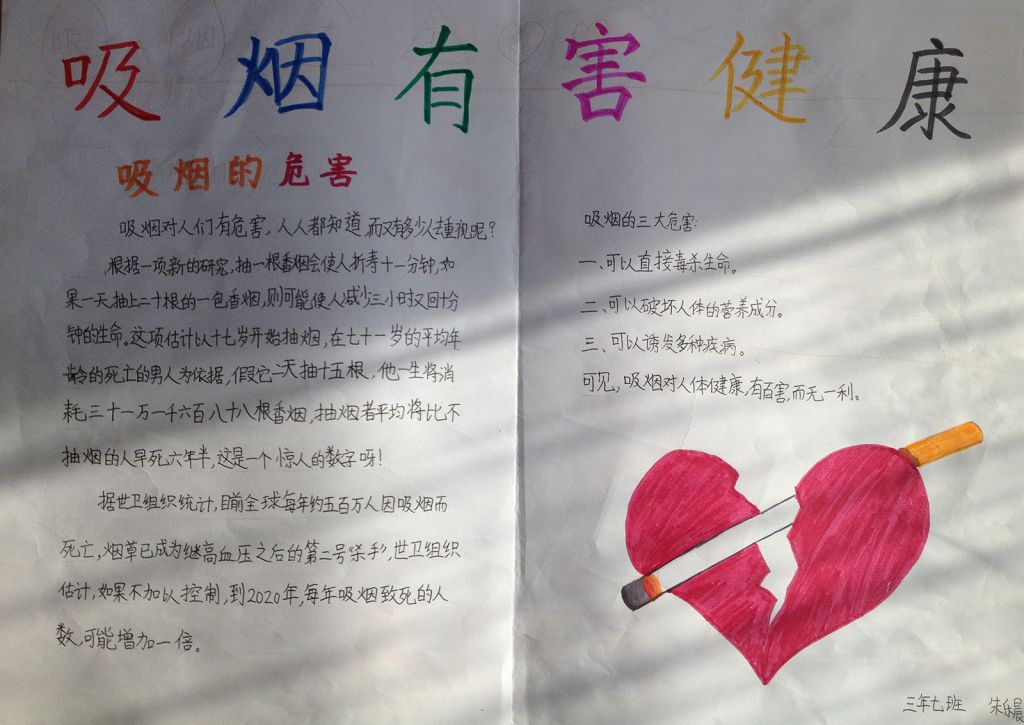 吸烟有害健康
吸烟的危害
吸烟对人们有危害，人人都知道，而又有多少人去重视呢？
根据一项新的研究，抽一根香烟会使人折寿十一分钟，如
果一天抽上二十根的一包香烟，则可能使人减少三小时又四十分
钟的生命。这项估计以十七岁开始抽烟，在七十一岁的平均年
龄的死亡的男人为依据，假它一天抽十五根，他一生将消
耗三十一万一千六百八十八根香烟，抽烟者平均将比不
抽烟的人早死六年半，这是一个惊人的数字呀！
据世卫组织统计，目前全球每年约五百万人因吸烟而
死亡，烟草已成为继高血压之后的第二号'杀手'，世卫组织
估计，如果不加以控制，到2020年，每年吸烟致死的人
数，可能增加一倍。
吸烟的三大危害：
一、可以直接毒杀生命。
二、可以破坏人体的营养成分。
三、可以诱发多种疾病。
可见，吸烟对人体健康，有百害，而无一利。
三年七班 朱乐晨